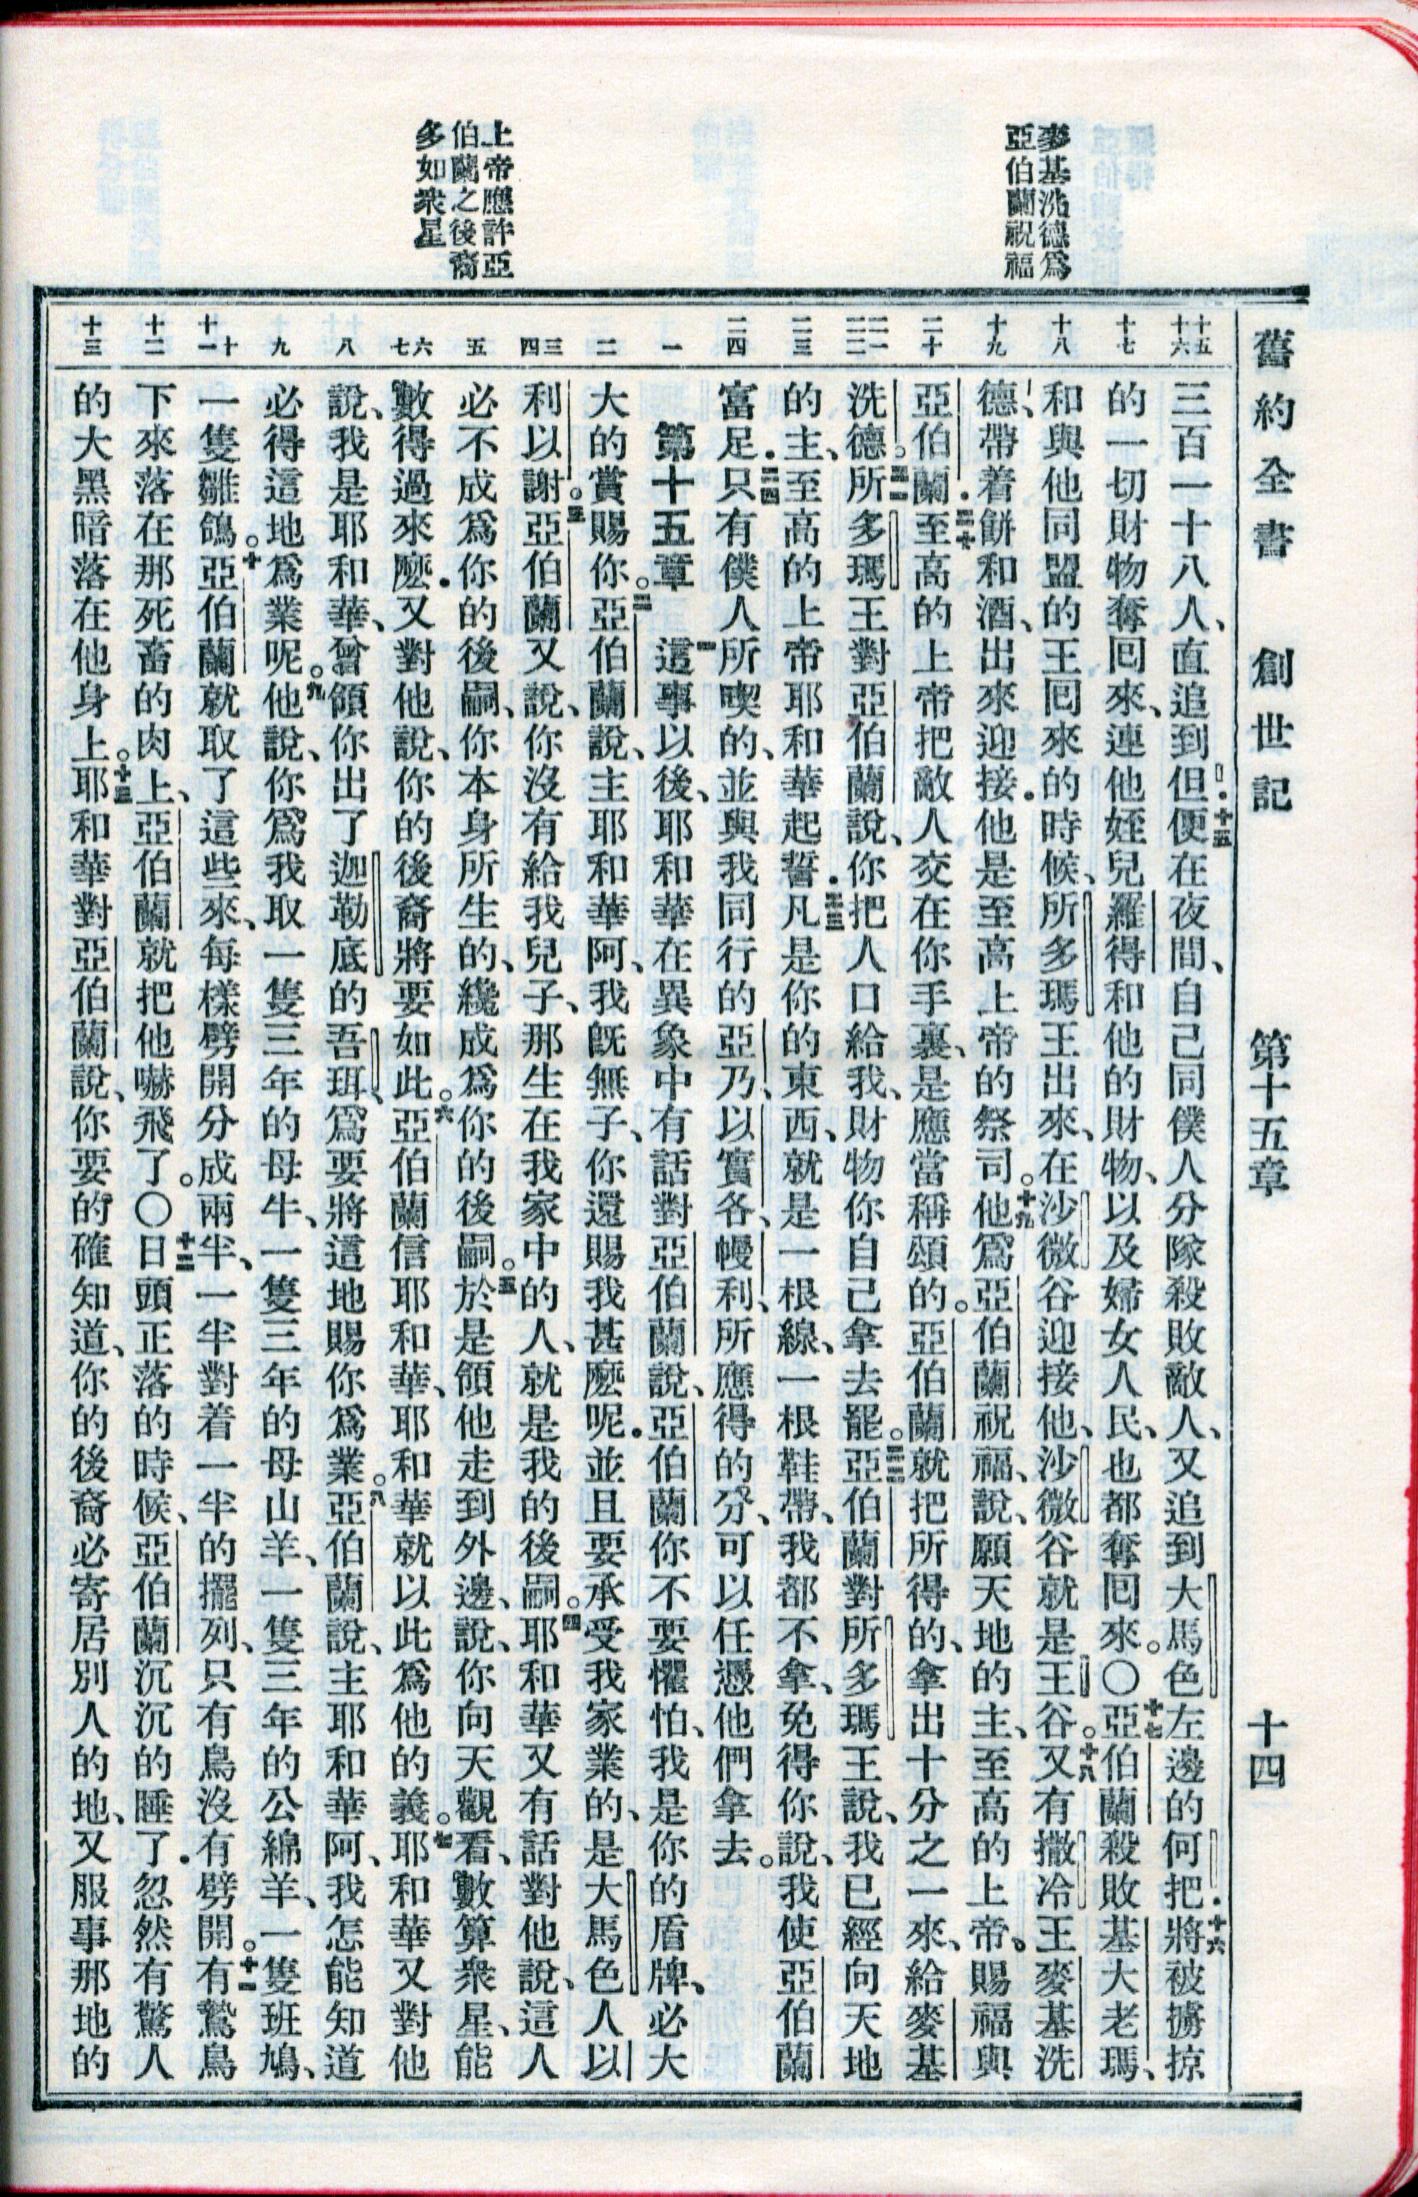 舊約全書　創世記　第十五章　十四
麥基洗德爲
亞伯蘭祝福
上帝應許亞
伯蘭之後裔
多如衆星
十五 十六
十七
十八
十九
二十
二一 二二
二三
二四
一
二
三 四
五
六 七
八
九
十 十一
十二
十三
三百一十八人、直追到但．十五便在夜間、自己同僕人分隊殺敗敵人、又追到大馬色左邊的何把．十六將被擄掠
的一切財物奪囘來、連他姪兒羅得和他的財物、以及婦女人民、也都奪囘來。〇十七亞伯蘭殺敗基大老瑪、
和與他同盟的王囘來的時候、所多瑪王出來、在沙微谷迎接他、沙微谷就是王谷。十八又有撒冷王麥基洗
德、帶着餅和酒、出來迎接．他是至高上帝的祭司。十九他爲亞伯蘭祝福、說、願天地的主、至高的上帝。賜福與
亞伯蘭．二十至高的上帝把敵人交在你手裏、是應當稱頌的。亞伯蘭就把所得的、拿出十分之一來、給麥基
洗德。二一所多瑪王對亞伯蘭說、你把人口給我、財物你自己拿去罷。二二亞伯蘭對所多瑪王說、我已經向天地
的主、至高的上帝耶和華起誓．二三凡是你的東西、就是一根線、一根鞋帶、我都不拿、免得你說、我使亞伯蘭
富足．二四只有僕人所喫的、並與我同行的亞乃、以實各、幔利、所應得的分、可以任憑他們拿去。
第十五章　一這事以後、耶和華在異象中有話對亞伯蘭說、亞伯蘭你不要懼怕、我是你的盾牌、必大
大的賞賜你。二亞伯蘭說、主耶和華阿、我旣無子、你還賜我甚麽呢．並且要承受我家業的、是大馬色人以
利以謝。三亞伯蘭又說、你沒有給我兒子、那生在我家中的人、就是我的後嗣。四耶和華又有話對他說、這人
必不成爲你的後嗣、你本身所生的、纔成爲你的後嗣。五於是領他走到外邊、說、你向天觀看、數算衆星、能
數得過來麽．又對他說、你的後裔將要如此。六亞伯蘭信耶和華、耶和華就以此爲他的義。七耶和華又對他
說、我是耶和華、曾領你出了迦勒底的吾珥、爲要將這地賜你爲業。八亞伯蘭說、主耶和華阿、我怎能知道
必得這地爲業呢。九他說、你爲我取一隻三年的母牛、一隻三年的母山羊、一隻三年的公綿羊、一隻班鳩、
一隻雛鴿。十亞伯蘭就取了這些來、每樣劈開分成兩半、一半對着一半的擺列、只有鳥沒有劈開。十一有鷙鳥
下來落在那死畜的肉上、亞伯蘭就把他嚇飛了。〇十二日頭正落的時候、亞伯蘭沉沉的睡了．忽然有驚人
的大黑暗落在他身上。十三耶和華對亞伯蘭說、你要的確知道、你的後裔必寄居別人的地、又服事那地的